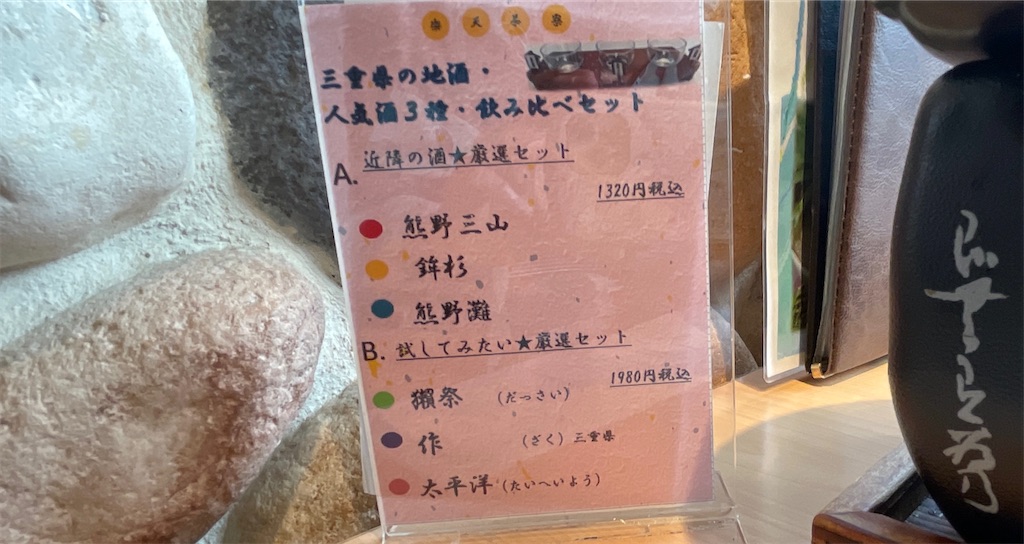 三重県の地酒・
人気酒3種・飲み比べセット
A. 近隣の酒★厳選セット
1320円税込
熊野三山
鉾杉
熊野灘
B. 試してみたい★厳選セット
1980円税込
獺祭 (だっさい)
作 (ざく) 三重県
太平洋 (たいへいよう)